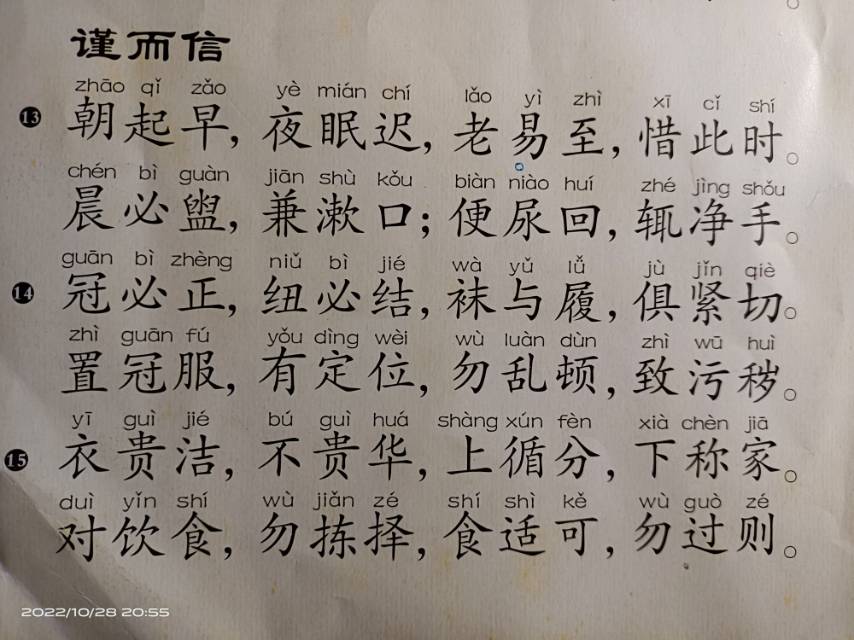 谨而信
zhāo qǐ zǎo yè mián chí lǎo yì zhì xī cǐ shí
⓭ 朝起早，夜眠迟，老易至，惜此时。
chén bì guàn jiān shù kǒu biàn niào huí zhé jìng shǒu
晨必盥，兼漱口；便尿回，辄净手。
guān bì zhèng niǔ bì jié wà yǔ lǚ jù jǐn qiè
⓮ 冠必正，纽必结，袜与履，俱紧切。
zhì guān fú yǒu dìng wèi wù luàn dùn zhì wū huì
置冠服，有定位，勿乱顿，致污秽。
yī guì jié bú guì huá shàng xún fèn xià chèn jiā
⓯ 衣贵洁，不贵华，上循分，下称家。
duì yǐn shí wù jiǎn zé shí shì kě wù guò zé
对饮食，勿拣择，食适可，勿过则。
2022/10/28 20:55